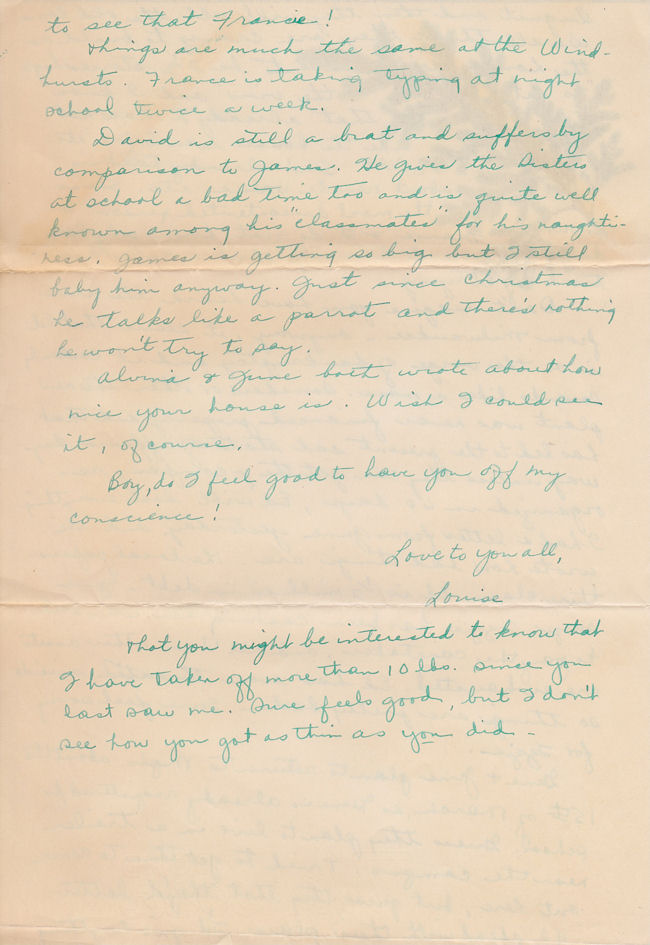 to see that France!
things are much the same at the Wind-
hursts. France is taking typing at night
school twice a week.
David is still a brat and suffers by
comparison to James. He gives the Sisters
at school a bad time too and is quite well
known among his "classmates" for his naughti-
ness. James is getting so big but I still
baby him anyway. Just since Christmas
he talks like a parrot and there's nothing
he won't try to say.
Alvina & June both wrote about how
nice your house is. Wish I could see
it, of course.
Boy, do I feel good to have you off my
conscience!
Love to you all,
Louise
thot you might be interested to know that
I have taken off more than 10 lbs. since you
last saw me. Sure feels good, but I don't
see how you got as thin as you did -